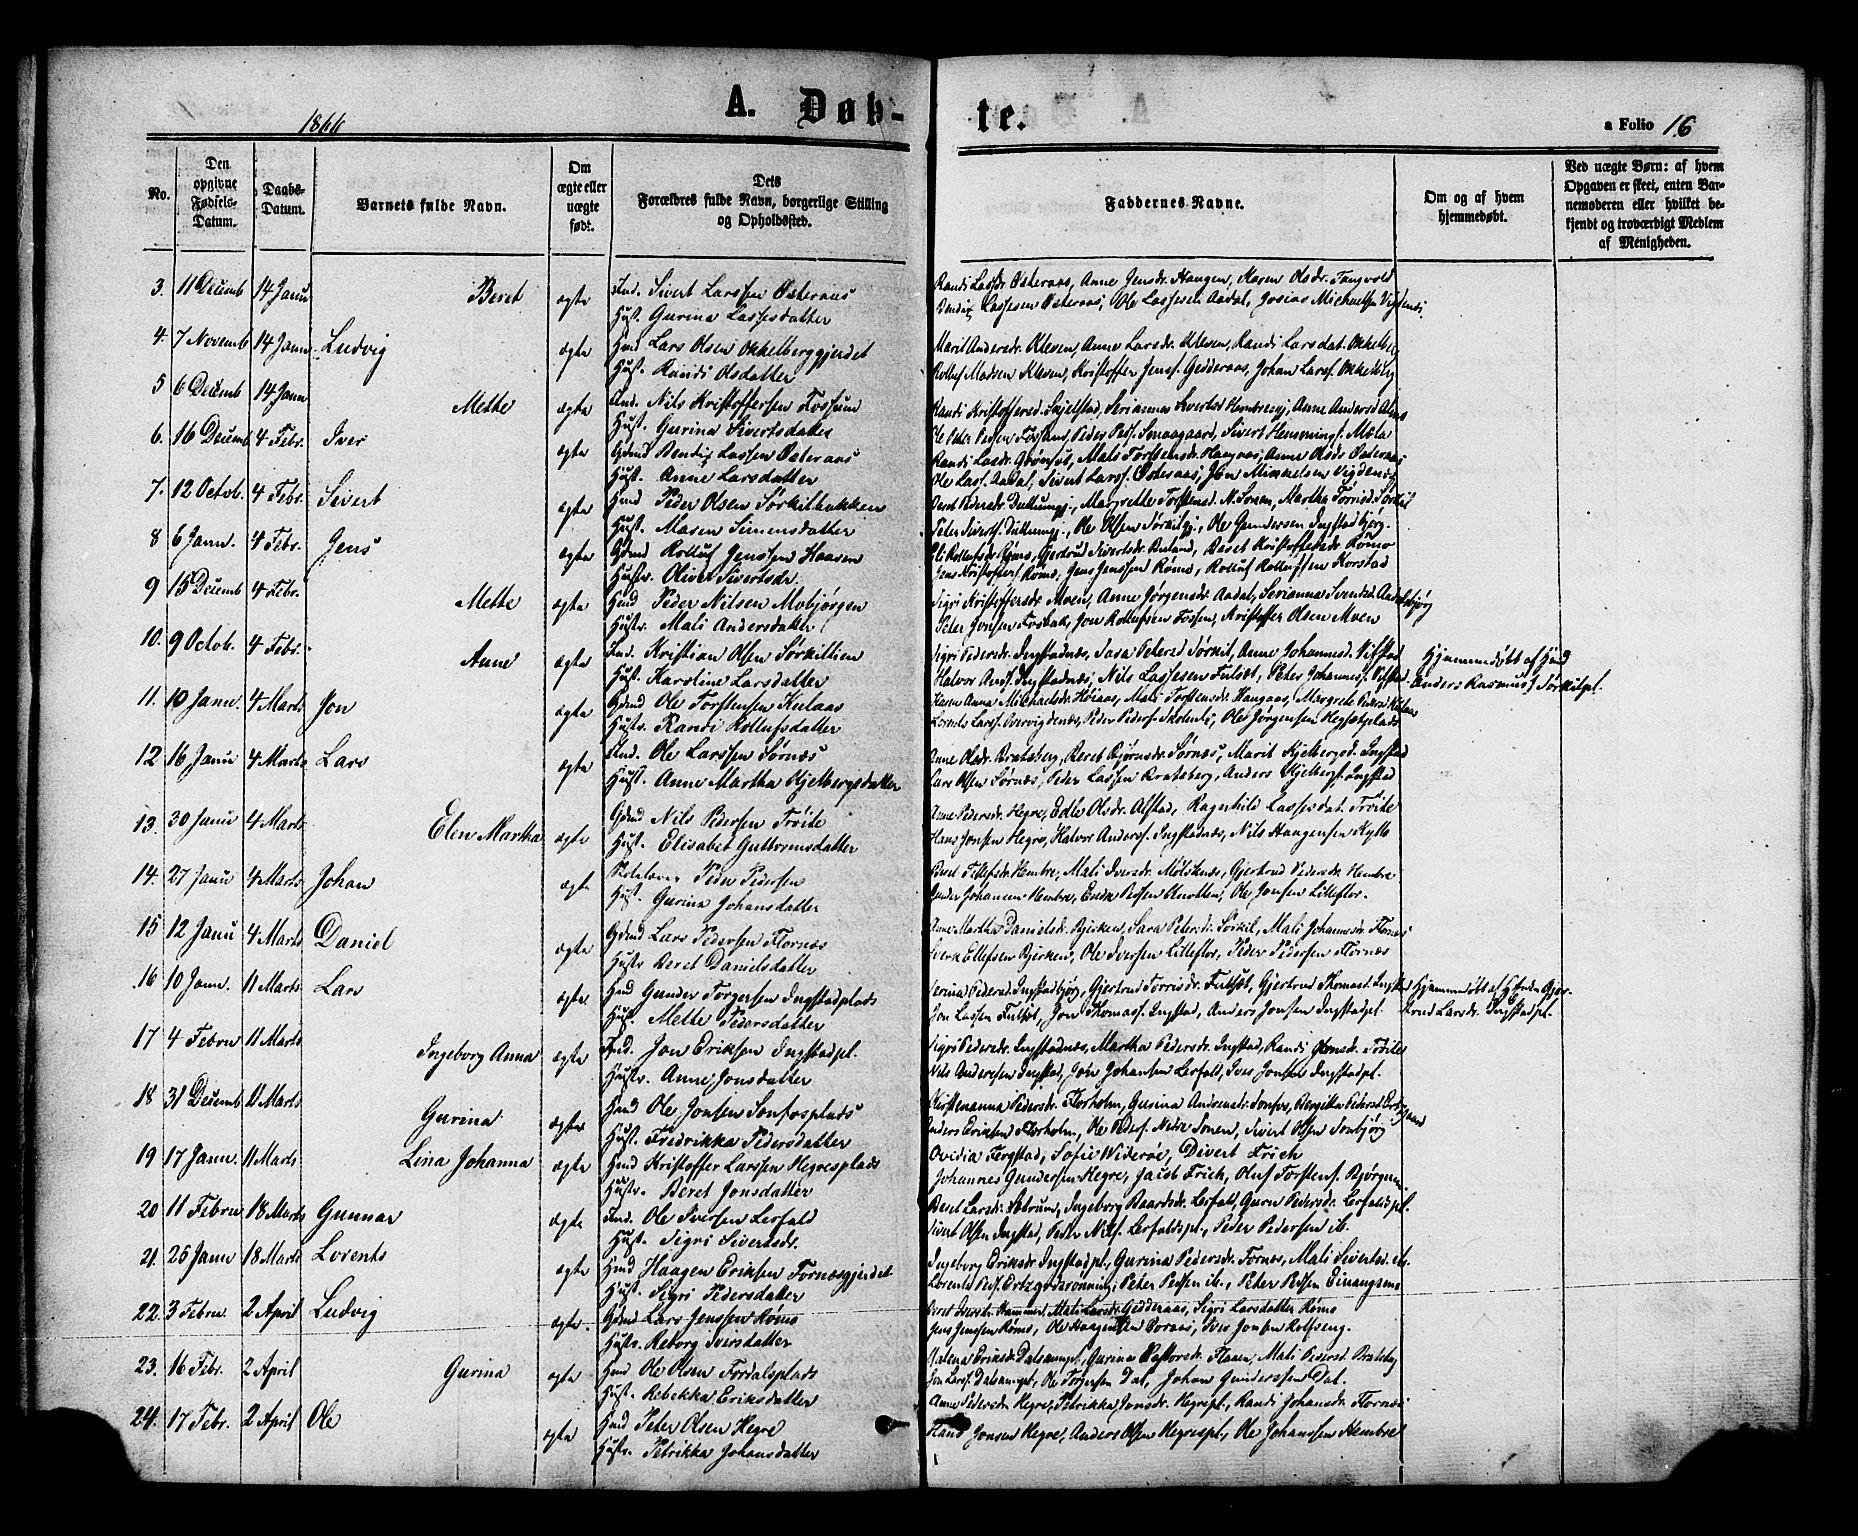 1866
A. Døb-te.
a Folio 16
No.
Den opgivne Fødsels-Datum.
Daabs-Datum.
Barnets fulde Navn.
Om ægte eller uægte født.
Dets Forældres fulde Navn, borgerlige Stilling og Opholdssted.
Faddernes Navne.
Om og af hvem hjemmedøbt.
Ved uægte Børn: af hvem Opgaven er skeet, enten Barnemoderen eller hvilket bekjendt og troværdigt Medlem af Menigheden.
3. 11 Decemb 14 Janu Beret ægte Ind. Sivert Larssen Østeraas
Hust. Gurina Lassesdatter
Randi Lassdr Østeraas, Anne Jensdr. Haugen, Maren Olsdr. Tangvold
Lassesen Østeraas, Ole Lassesen Aadal, Josias Michaelsen
4. 7 Novemb 14 Janu Ludvig ægte Hmd Lars Olsen Okkelberggjerdet
Hust. Randi Olsdatter
Marit Andersdr. Kleven, Anne Larsdr. Kleven, Randi Larsdat. Okkelberg
Rolluf Madsen Kleven, Kristoffer Jenss. Gedderaas, Johan Larss. Okkelberg
5 6 Decemb 14 Janu Mette ægte Ind. Nils Kristoffersen Fossum
Hust. Gurina Sivertsdatter
Randi Kristoffersd. Skjelstad, Serianna Sivertsd. Anne Andersd
Peder Peds. Smaagaard, Sivert Hemmings. Mæla
6. 16 Decemb 4 Febr. Iver ægte Gdmd Bendix Lassen Østeraas
Hust. Anne Larsdatter
Randi Lasdr. Grønset, Mali Torstensdr. Haugaas, Anne Olsdr Østeraas
Ole Lass. Aadal, Sivert Larss. Østeraas, Jon Mikkelsen
7. 12 Octob. 4 Febr. Sivert ægte Hmd Peder Olsen Sørkilbakken
Hust. Maren Simensdatter
Margrethe Torstensd. N. Sonen, Martha Torrisd. Sørkil
Ole Olsen Ole Gundersen Ingstadbjørg.
8 6 Janu. 4 Febr. Jens ægte Gdmd Rolluf Jenssen Haasen
Hustr. Olive Sivertsdr.
Gjertrud Sivertsdr. Ruland, Beret Kristoffersdr. Rømo
Jens Kristoffers. Rømo, Jens Jenssen Rømo, Rolluf Rollufssen Korstad
9 15 Decemb 4 Febr. Mette ægte Hmd Peder Nilsen Mobjørgen
Hustr. Mali Andersdatter
Sigri Kristoffersdr. Moen, Anne Jørgensdr. Aadal, Serianna Svendsd.
Peter Jonsen Fosbak, Jon Rollufsen Fossen, Kristoffer Olsen Moen
10. 9 Octob. 4 Febr. Anne ægte Ind. Kristian Olsen Sørkillien
Hust. Karoline Larsdatter
Sigri Pedersdr. Ingstadnæs, Sara Petersd Sørkil, Anne Johannesd. Vifstad
Halvor Ands. Ingstadnæs, Nils Lassesen Fulset, Peter Johanness. Vifstad
Hjemmedøbt af Hmd
Anders Rasmuss. Sørkilpl.
11. 10 Janu. 4 Marts Jon ægte Gdmd Ole Torstensen Kulaas
Hustr. Randi Rollufsdatter
Karen Anna Michaelsdr. Høiaas, Mali Torstensdr. Haugaas, Margrete Pedersd.
Lorents Larss. Peder Peders. Ole Jørgensen Hegsetplads
12 16 Janu 4 Marts Lars ægte Ind. Ole Larssen Sørnæs
Hust. Anne Martha Kjelbergsdatter
Anne Olsdr. Bratsberg, Beret Bjørnsdr. Sørnæs, Marit Kjelbergsd. Ingstad
Lars Olsen Sørnæs, Peder Lassen Bratsberg, Anders Kjelbergs. Ingstad
13. 30 Janu 4 Marts Elen Martha ægte Gdmd Nils Pedersen Trøite
Hust. Elisabet Guttormsdatter
Anne Pedersdr. Hegre, Edle Olsdr. Alstad, Ragnhild Lassesdat. Trøite
Hans Jonsen Hegre, Halvor Anderss. Ingstadnæs, Nils Haagensen Kyllo
14. 27 Janu 4 Marts Johan ægt Peder Pedersen
Hust. Gurina Johansdatter
Beret Hembre, Mali Iversdr. Gjertrud Pedersdr. Hembre
Johansen Hembre, Ole Jonsen Lilleflor.
15 12 Janu 4 Marts Daniel ægte Gdmd Lars Pedersen Flornæs
Hustr Beret Danielsdatter
Anne Martha Danielsdr. Bjerken, Sara Petersdr. Sørkil, Mali Johannesdr. Flornæs
Ellefsen Bjerken, Ole Iversen Lilleflor, Peder Pedersen Flornæs
16 10 Janu. 11 Marts Lars ægte Hmd Gunder Torgersen Ingstadplads
Hust. Mette Pedersdatter
Serina Pedersd. Ingstadbjørg, Gjertrud Torrisdr. Fulset, Gjertrud Thomasd. Ingstad
Jon Lassen Fulset, Jon Thomass. Ingstad, Anders Jonsen Ingstadpl.
Hjemmedøbt af Gjer-
trud Larsdr. Ingstadpl.
17 4 Februu 11 Marts Ingeborg Anna ægte Ind. Jon Eriksen Ingstadpl.
Hustr. Anne Jonsdatter
Sigri Pedersdr. Ingstadnæs, Martha Pedersdr. Ingstad, Randi Trøite
Nils Anderssen Ingstad, Jon Johansen Lerfald, Iver Jonsen Ingstadpl.
18 31 Decemb 11 Marts Gurina ægte Hmd Ole Jonsen Sonfosplads
Hust. Fredrikka Pedersdatter
Kirstenanna Pedersdr. Florholm, Gurina Andreasdr. Sonfos, Bergitta Pedersd.
Anders Eriksen Florholm, Ole Peders. Nedre Sonen, Sivert Olsen Sonbjørg
19 17 Janu. 11 Marts Lina Johanna ægte Hmd Kristoffer Larssen Hegresplads
Hustr. Beret Jonsdatter
Ovidia Fergstad, Sofie Widerøe, Divert Frich
Johannes Gundersen Hegre, Jacob Frich, Oluf Torstens. Bjørgum
20 11 Februu 18 Marts Gunnar ægte Ind. Ole Iversen Lerfald
Hust. Sigri Sivertsdr.
Beret Larsdr. Setrum, Ingeborg Baardsdr. Lerfald, Guru Pedersdr. Lerfaldspl.
Sivert Olsen Ingstad, Peder Nils. Lerfaldspl., Peder Pedersen ib.
21. 25 Janu 18 Marts Lorents ægte Hmd Haagen Eriksen Fornæsgjerdet
Hust. Sigri Pedersdatter
Ingeborg Eriksdr Ingstadpl., Gurina Pedersdr. Fornæs, Mali Sivertsd. ib.
Lorents Peds. Ertzgaardsronning, Peter Pedsen ib., Peter Pedsen Einangsmo
22. 3 Februu. 2 April Ludvig ægte. Gdmd Lars Jenssen Rømo
Hustr. Reborg Iversdatter
Beret Iversdr. Hammer, Mali Larsdr. Gedderaas, Sigri Larsdatter Rømo
Jens Jenssen Rømo, Ole Haagensen Boraas, Iver Jonsen Rolfseng.
23. 16 Febr. 2 April Gurina ægte Hmd Ole Olsen Fordalsplads
Hust. Rebekka Eriksdatter
Malena Eriksdr. Dalsaunpl., Gurina Flaaen, Mali Pedersd. Bratsberg
Jon Larss. Dalsaunpl., Ole Torgersen Dal, Johan Gunderssen Dal.
24. 17 Febr. 2 April Ole ægte Hmd Peter Olsen Hegre
Hustr. Petrikka Johansdatter
Anne Pedersdr. Hegre, Petrikka Jonsdr. Hegrepl., Randi Johansdr. Flornæs
Hans Jonsen Hegre, Anders Olsen Hegrespl., Ole Johanssen Hembre